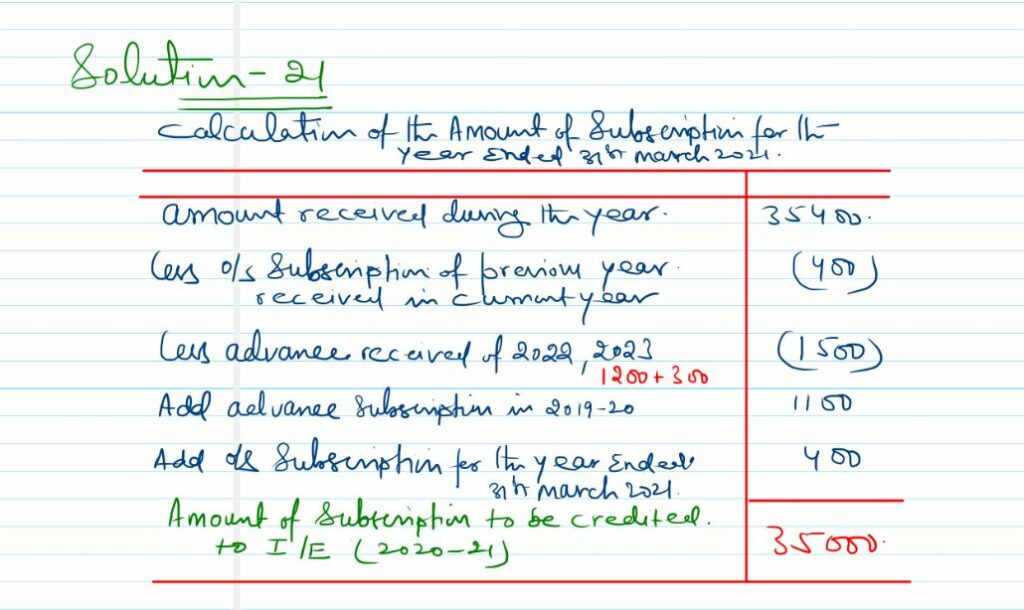 Solution - 21
Calculation of the Amount of Subscription for the
year Ended 31st march 2021.
amount received during the year. 35400.
Less o/s Subscription of previous year. (400)
received in current year
Less advance received of 2022, 2023 (1500)
1200 + 300
Add advance Subscription in 2019-20 1100
Add o/s Subscription for the year Ended 400
31st march 2021.
Amount of Subscription to be credited.
to I/E (2020-21) 35000.